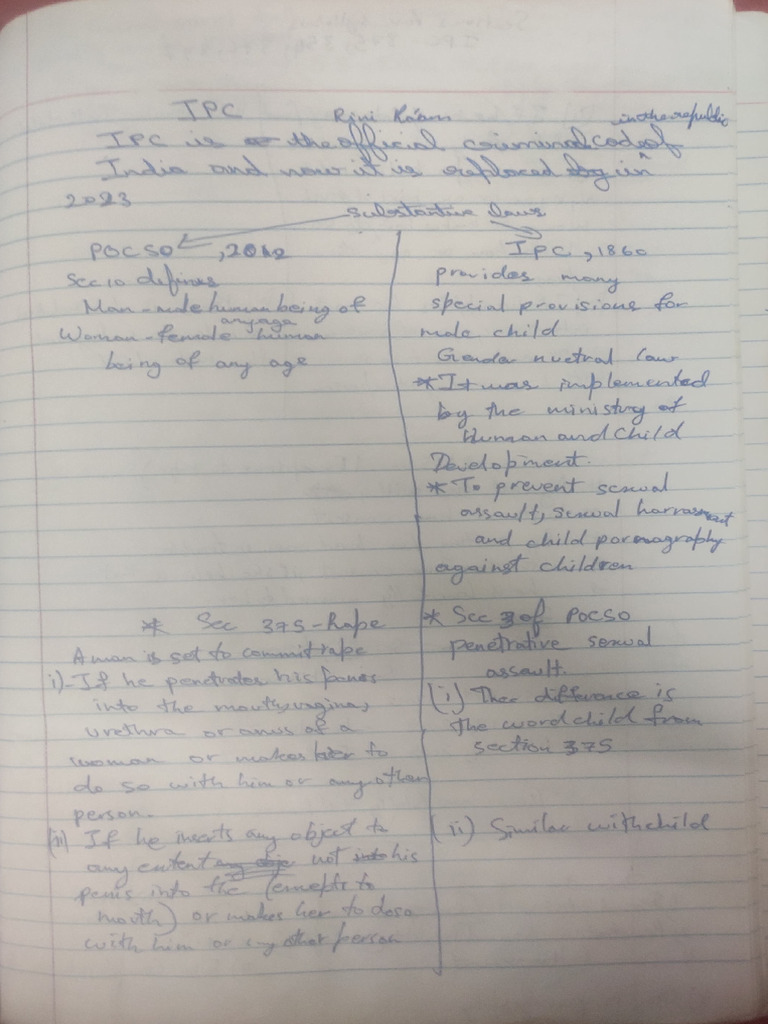 IPC
in the republic
IPC is the official criminal code of
India and now it is replaced by in
2023
substantive laws
POCSO, 2012
Sec 10 defines
Man - male human being of
any age
Woman - female human
being of any age
IPC, 1860
provides many
special provisions for
male child
Genda nuetral law
* It was implemented
by the ministry of
Human and Child
Development.
* To prevent sexual
assault, sexual harrasment
and child pornography
against children
* Sec 375 - Rape
A man is set to commit rape
i) - If he penetrates his penis
into the mouth, vagina,
urethra or anus of a
woman or makes her to
do so with him or any other
person.
(ii) If he inserts any object to
any extent not his
penis into the (excepts to
mouth) or makes her to doso
with him or any other person
* Sec 3 of POCSO
penetrative sexual
assault.
(i) Thee difference is
the word child from
section 375
(ii) Similar with child